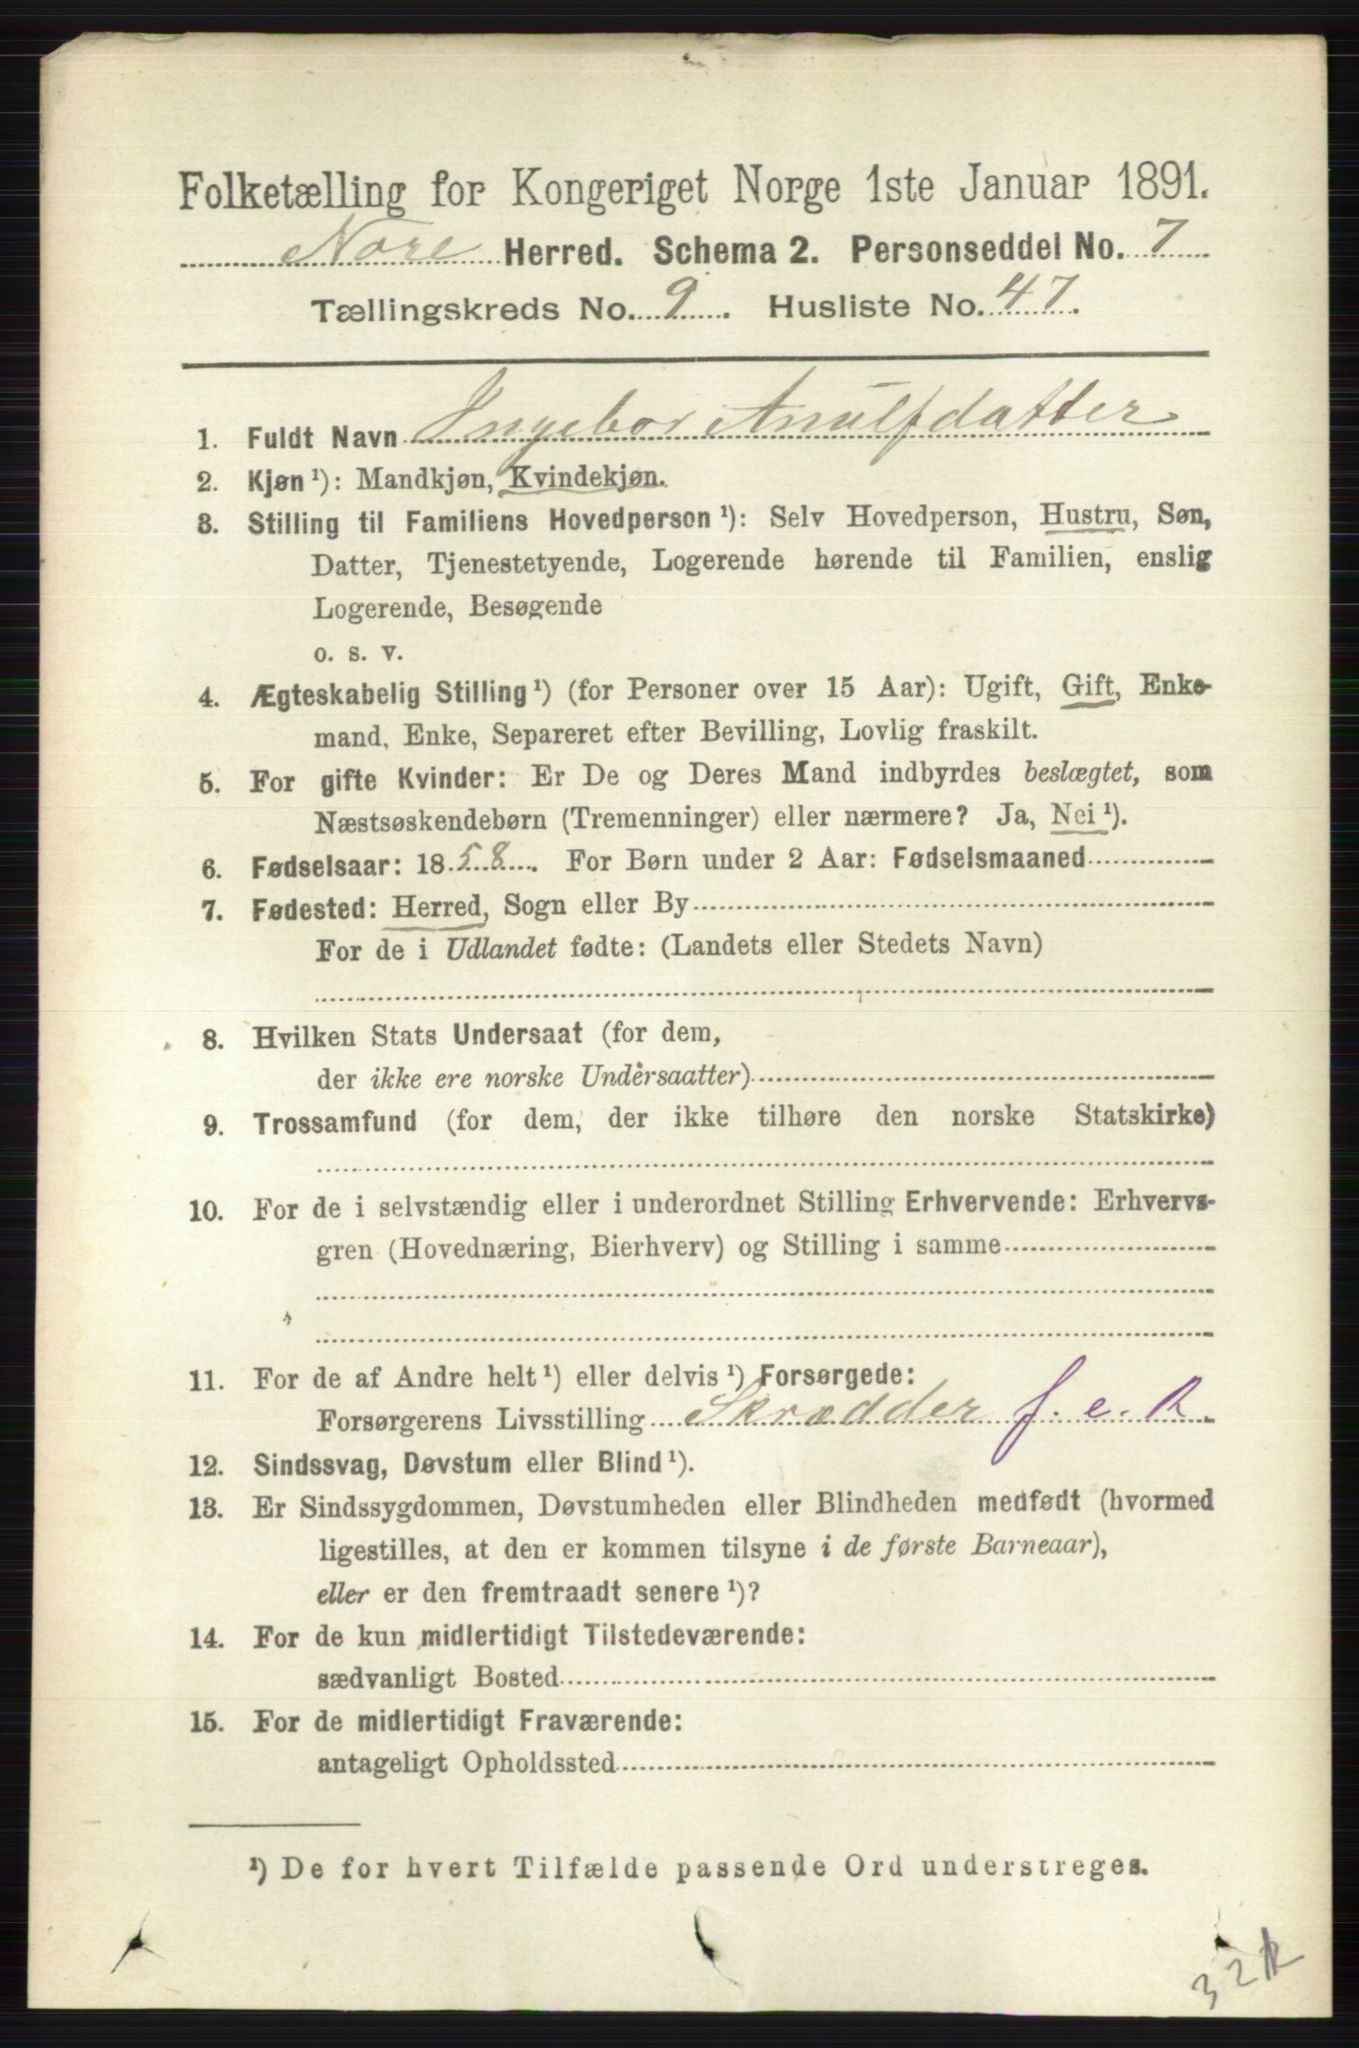 Folketælling for Kongeriget Norge 1ste Januar 1891.
Nore Herred. Schema 2. Personseddel No. 7
Tællingskreds No. 9. Husliste No. 47.
1. Fuldt Navn Ingebor Anulfdatter
2. Kjøn ¹): Mandkjøn, Kvindekjøn.
3. Stilling til Familiens Hovedperson ¹): Selv Hovedperson, Hustru, Søn,
Datter, Tjenestetyende, Logerende hørende til Familien, enslig
Logerende, Besøgende
o. s. v.
4. Ægteskabelig Stilling ¹) (for Personer over 15 Aar): Ugift, Gift, Enke-
mand, Enke, Separeret efter Bevilling, Lovlig fraskilt.
5. For gifte Kvinder: Er De og Deres Mand indbyrdes beslægtet, som
Næstsøskendebørn (Tremenninger) eller nærmere? Ja, Nei ¹).
6. Fødselsaar: 1858. For Børn under 2 Aar: Fødselsmaaned
7. Fødested: Herred, Sogn eller By
For de i Udlandet fødte: (Landets eller Stedets Navn)
8. Hvilken Stats Undersaat (for dem,
der ikke ere norske Undersaatter)
9. Trossamfund (for dem, der ikke tilhøre den norske Statskirke)
10. For de i selvstændig eller i underordnet Stilling Erhvervende: Erhvervs-
gren (Hovednæring, Bierhverv) og Stilling i samme
11. For de af Andre helt ¹) eller delvis ¹) Forsørgede:
Forsørgerens Livsstilling Skrædder f. e. R.
12. Sindssvag, Døvstum eller Blind ¹).
13. Er Sindssygdommen, Døvstumheden eller Blindheden medfødt (hvormed
ligestilles, at den er kommen tilsyne i de første Barneaar),
eller er den fremtraadt senere ¹)?
14. For de kun midlertidigt Tilstedeværende:
sædvanligt Bosted
15. For de midlertidigt Fraværende:
antageligt Opholdssted
¹) De for hvert Tilfælde passende Ord understreges.
32R